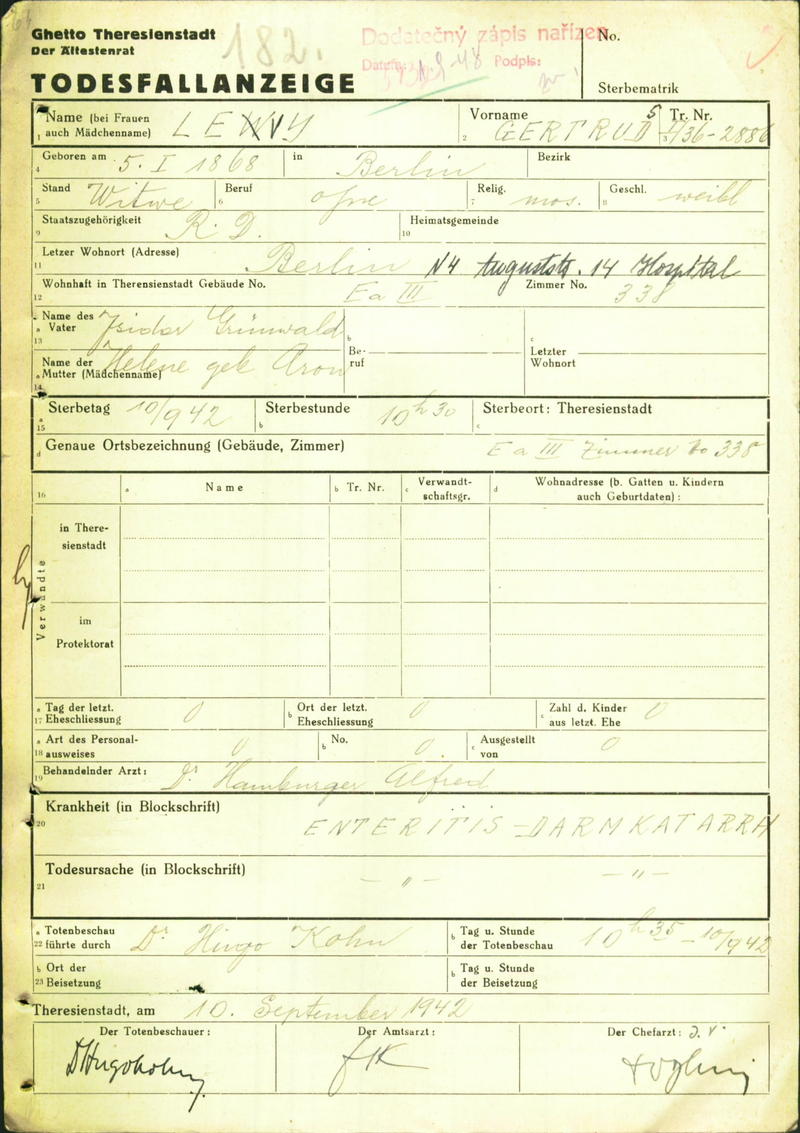 Ghetto Theresienstadt
Der Ältestenrat
182.
Dodatečný zápis nařízen
Datum: Podpis:
No.
TODESFALLANZEIGE
Sterbematrik
1 Name (bei Frauen auch Mädchenname) LEWY
2 Vorname GERTRUD
3 Tr. Nr. I/36-2886
4 Geboren am 5. I 1868 in Berlin Bezirk
5 Stand Witwe 6 Beruf ohne 7 Relig. mos. 8 Geschl. weibl
9 Staatszugehörigkeit R. D. 10 Heimatsgemeinde
11 Letzer Wohnort (Adresse) Berlin N4 Auguststr. 14 Hospital
12 Wohnhaft in Therensienstadt Gebäude No. E a III Zimmer No. 338
13 a Name des Vater Isidor Grünwald
b Be-ruf
c Letzter Wohnort
14 a Name der Mutter (Mädchenname) Helene geb Aron
15 a Sterbetag 10/9 42 b Sterbestunde 10 h 30 c Sterbeort: Theresienstadt
d Genaue Ortsbezeichnung (Gebäude, Zimmer) E a III Zimmer No 338
16 a Name b Tr. Nr. c Verwandt-schaftsgr. d Wohnadresse (b. Gatten u. Kindern auch Geburtdaten):
Verwandte
in There-sienstadt
im Protektorat
17 a Tag der letzt. Eheschliessung 0 b Ort der letzt. Eheschliessung 0 c Zahl d. Kinder aus letzt. Ehe 0
18 a Art des Personal-ausweises 0 b No. 0. c Ausgestellt von 0
19 Behandelnder Arzt: Dr Hamburger Alfred
20 Krankheit (in Blockschrift) ENTERITIS = DARMKATARRH
21 Todesursache (in Blockschrift) — " — — " —
22 a Totenbeschau führte durch Dr Hugo Kohn b Tag u. Stunde der Totenbeschau 10 h 35 - 10/9 42
23 b Ort der Beisetzung b Tag u. Stunde der Beisetzung
Theresienstadt, am 10. September 1942
Der Totenbeschauer: Der Amtsarzt: Der Chefarzt: J. V.
Dr Hugo Kohn